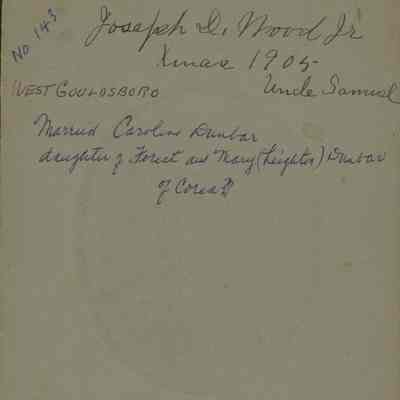 No 143
Joseph D. Wood Jr
Xmas 1905
WEST GOULDSBORO
Uncle Samuel
Married Caroline Dunbar
daughter of Forest and Mary (Leighton) Dunbar
of Corea